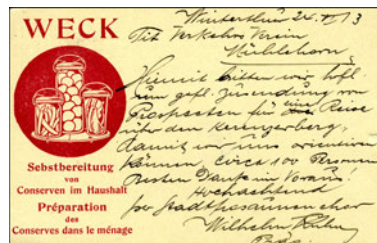 WECK
Selbstbereitung
von
Conserven im Haushalt
Préparation
des
Conserves dans le ménage
Winterthur 24. II 13
Tit Verkehrs Verein
Mühlehorn
Hiemit bitten wir höfl.
um gefl. Zusendung von
Prospecten für eine Reise
über den Kerenzerberg,
damit wir uns orientiren
können, circa 100 Personen
Besten Dank im Voraus!
Hochachtend
per Stadtposaunenchor
Wilhelm